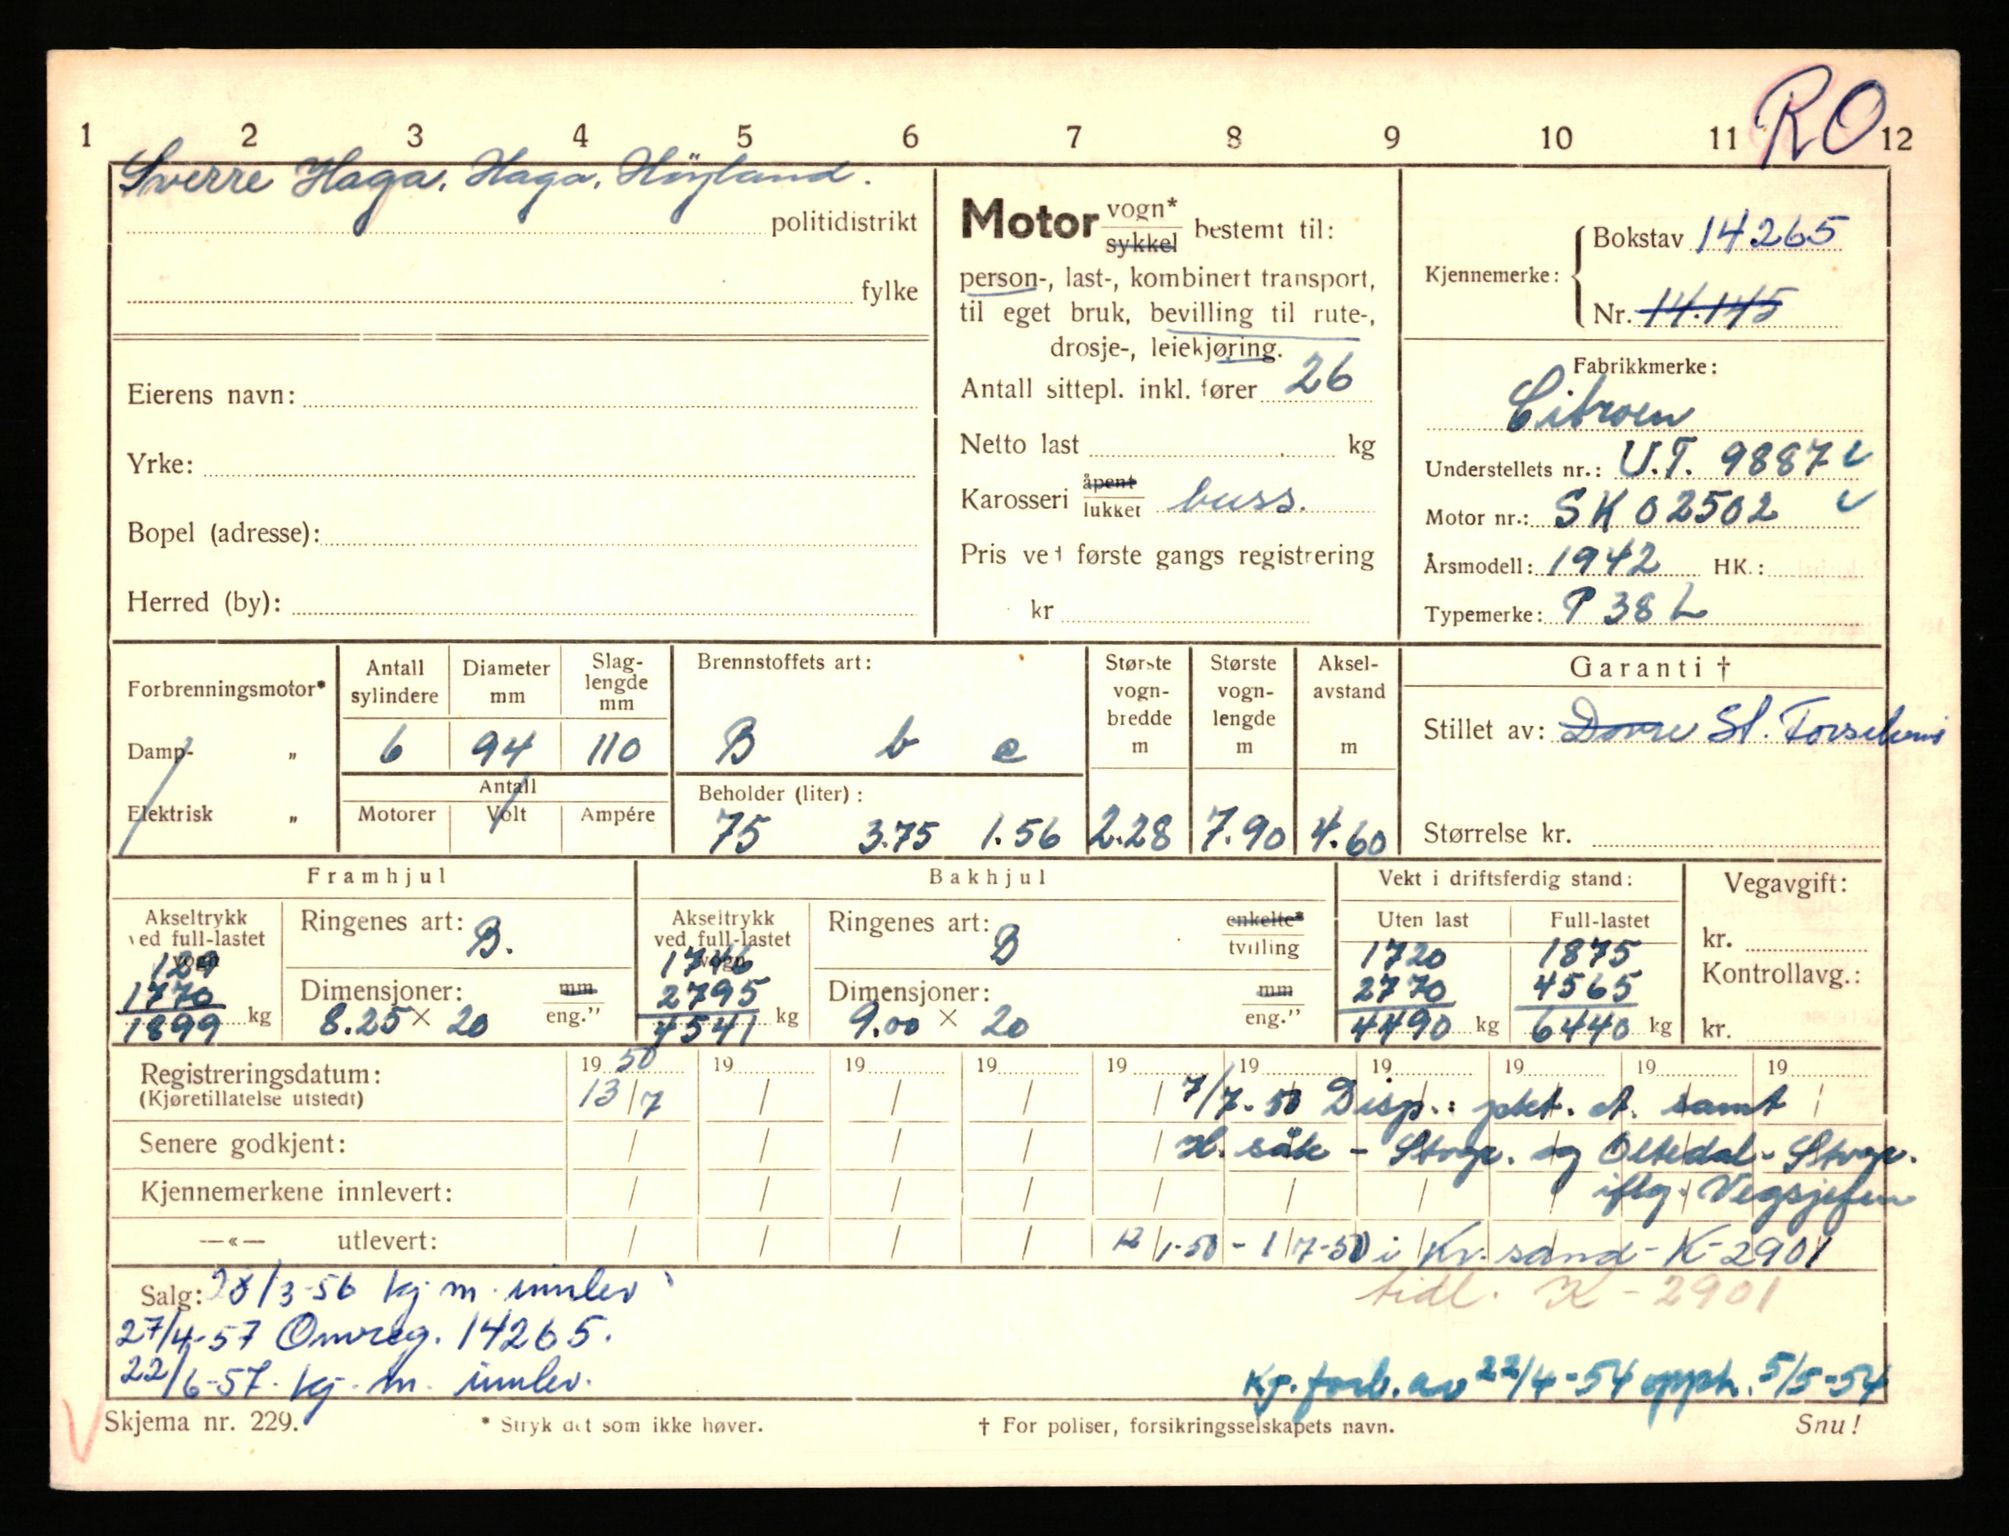 RO
1 2 3 4 5 6 7 8 9 10 11 12
Sverre Haga, Haga, Høyland.
politidistrikt
fylke
Eierens navn:
Yrke:
Bopel (adresse):
Herred (by):
Motor vogn* sykkel bestemt til:
person-, last-, kombinert transport,
til eget bruk, bevilling til rute-,
drosje-, leiekjøring.
Antall sittepl. inkl. fører 26
Netto last kg
Karosseri åpent lukket buss.
Pris ved første gangs registrering
kr
Kjennemerke: Bokstav 14265
Nr. 14.145
Fabrikkmerke:
Citroen
Understellets nr.: U.T. 9887
Motor nr.: SK02502
Årsmodell: 1942 HK.:
Typemerke: P 38 L
Forbrenningsmotor*
Damp- „
Elektrisk „
Antall sylindere 6
Diameter mm 94
Slaglengde mm 110
Antall
Motorer Volt Ampére
Brennstoffets art:
B b e
Beholder (liter):
75 3.75 1.56
Største vognbredde m 2.28
Største vognlengde m 7.90
Akselavstand m 4.60
Garanti †
Stillet av: Dovre St.
Størrelse kr.
Framhjul
Akseltrykk ved full-lastet vogn
129
1770
1899 kg
Ringenes art: B.
Dimensjoner: mm
8.25 × 20 eng.”
Bakhjul
Akseltrykk ved full-lastet vogn
1746
2795
4541 kg
Ringenes art: B enkelte* tvilling
Dimensjoner: mm
9.00 × 20 eng.”
Vekt i driftsferdig stand:
Uten last Full-lastet
1720 1875
2770 4565
4490 kg 6440 kg
Vegavgift:
kr.
Kontrollavg.:
kr.
19 50 19 19 19 19 19 19 19 19 19
Registreringsdatum: 13/7 7/7-50 Disp.: pkt. samt
(Kjøretillatelse utstedt)
Senere godkjent: søk - Stvgr. og Oltedal - Stvgr.
Kjennemerkene innlevert: iflg. Vegsjefen
—«— utlevert: 12/1-50 - 1/7-50 i Kr. sand - K-2901
Salg: 28/3-56 kj m. innlev
tidl. K - 2901
27/4-57 Omreg. 14265.
22/6-57. kj. m. innlev.
Kj. forb. av 22/4-54 opph. 5/5-54
Skjema nr. 229.
* Stryk det som ikke høver.
† For poliser, forsikringsselskapets navn.
Snu!